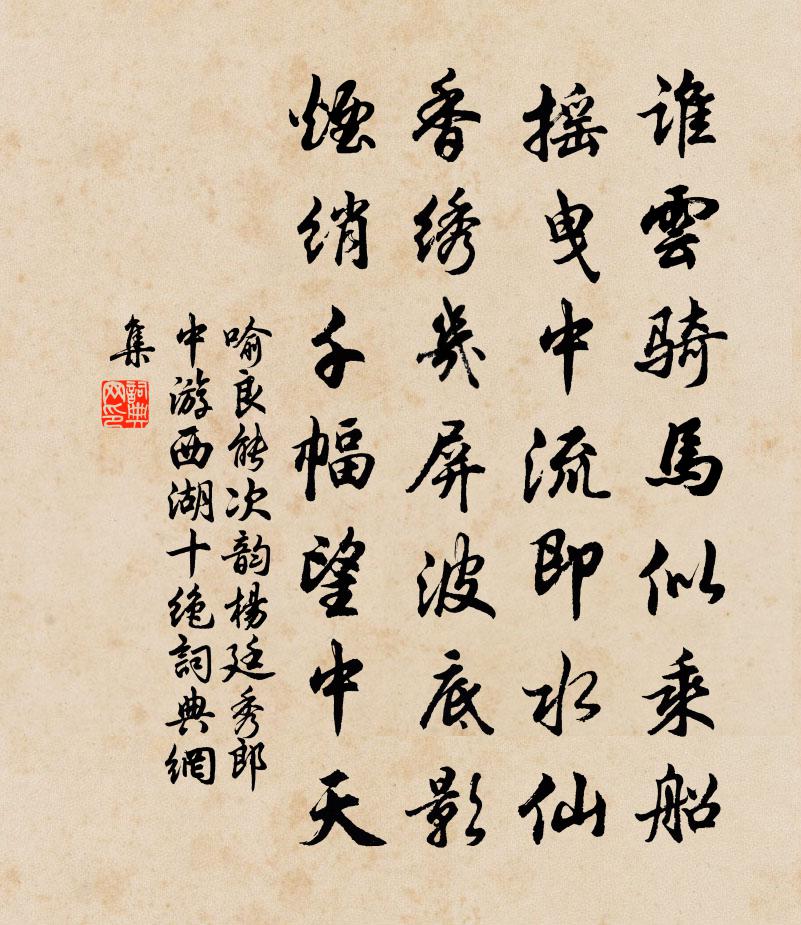 谁雲骑馬似乘船
摇曳中流即水仙
香绣幾屏波底影
煙绡千幅望中天
喻良能次韵楊廷秀郎
中游西湖十绝詞典網
集
詞典
网印